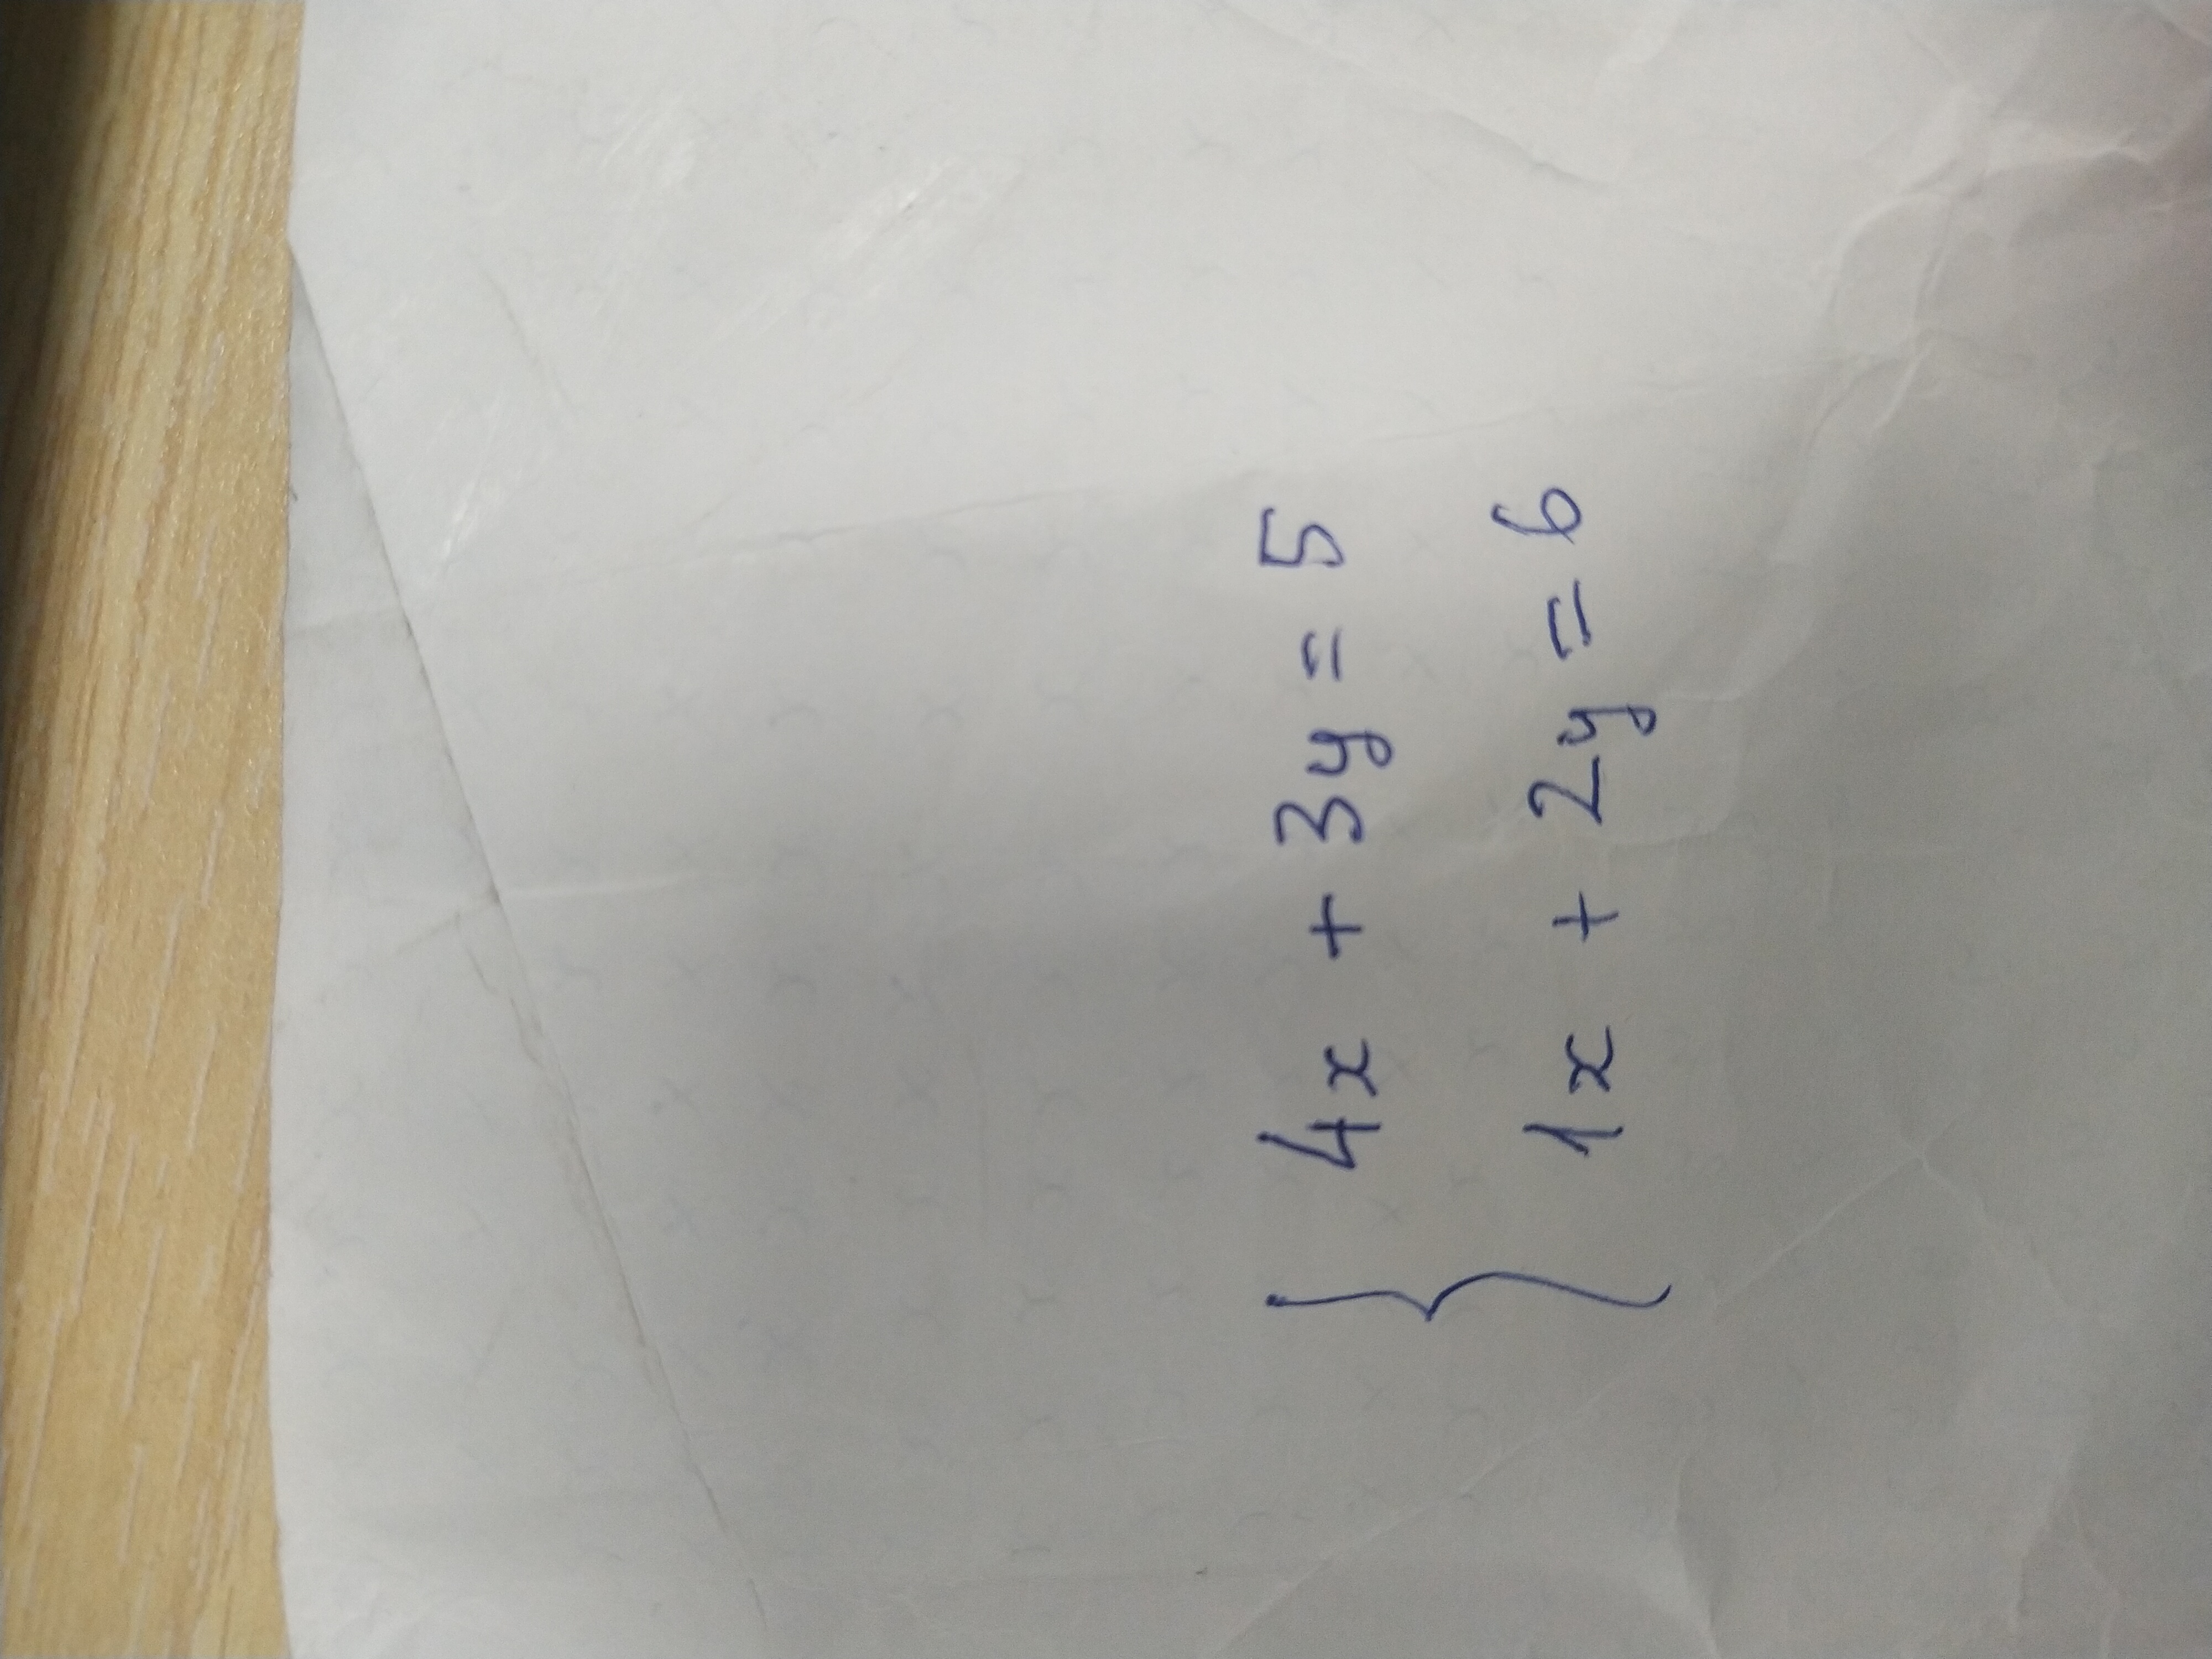 4x + 3y = 5
1x + 2y = 6